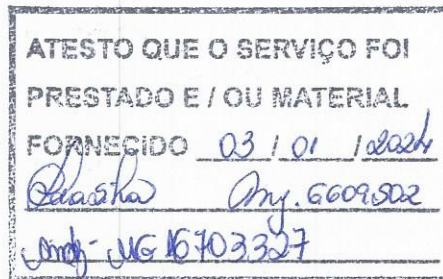 ATESTO QUE O SERVIÇO FOI
PRESTADO E / OU MATERIAL
FORNECIDO 03 / 01 / 2024
6609.502
MG 16703327